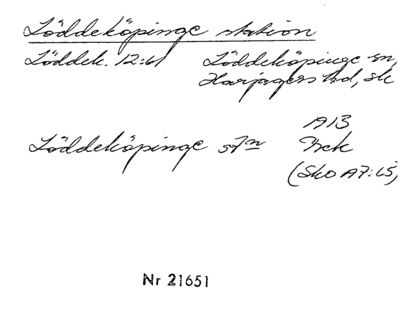 Löddeköpinge station
Löddek. 12:61 Löddeköpinge sn,
Harjagers hd, sk
A13
Löddeköpinge stn Frk
(Sko A7:65)
Nr 21651